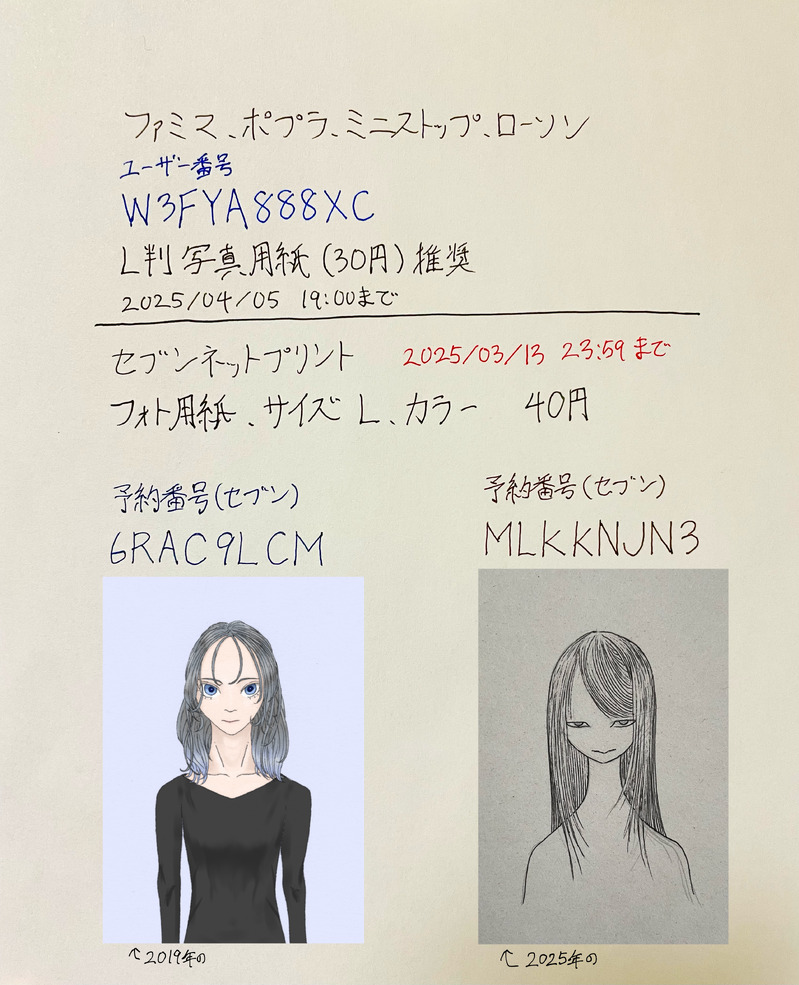 ファミマ、ポプラ、ミニストップ、ローソン
ユーザー番号
W3FYA888XC
L判写真用紙(30円)推奨
2025/04/05 19:00まで
セブンネットプリント 2025/03/13 23:59まで
フォト用紙、サイズL、カラー 40円
予約番号(セブン)
6RAC9LCM
予約番号(セブン)
MLKKNJN3
↑2019年の
↑2025年の